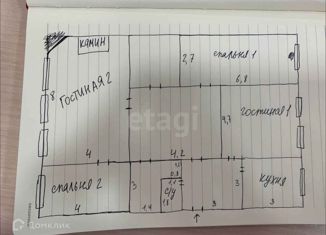 камин
Гостиная 2
8
2,7
спальня 1
6,8
etagi
9,7
гостиная 1
4
4,2
спальня 2
4
3
1,4
0,8
1,1
с/у
1,8
3
3
кухня
3
Домклик